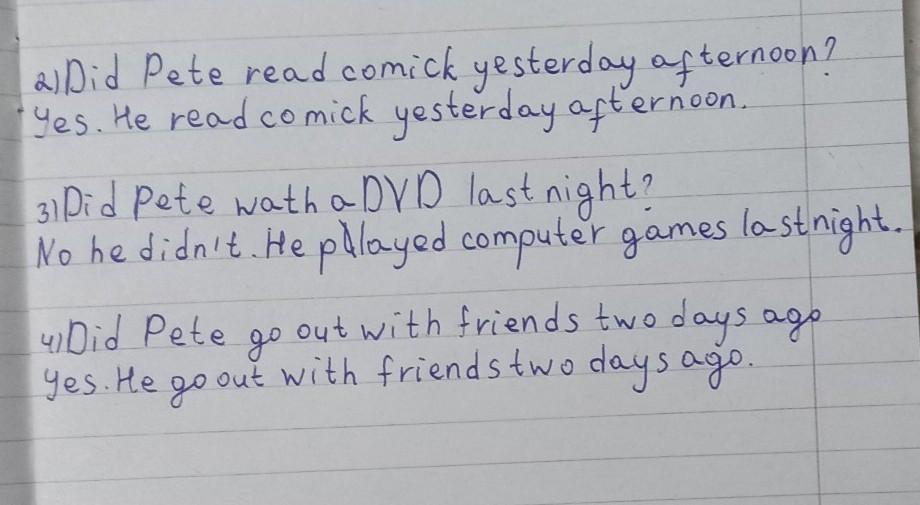 2) Did Pete read comick yesterday afternoon?
Yes. He read comick yesterday afternoon.
3) Did Pete wath a DVD last night?
No he didn't. He played computer games last night.
4) Did Pete go out with friends two days ago
Yes. He go out with friends two days ago.